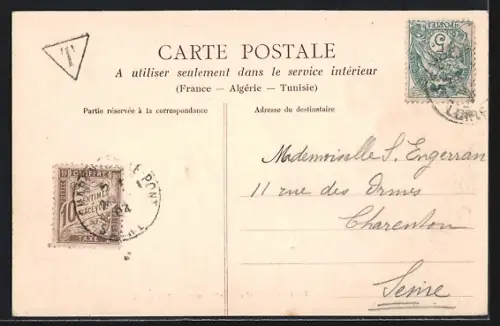 T
CARTE POSTALE
A utiliser seulement dans le service intérieur
(France — Algérie — Tunisie)
Partie réservée à la correspondance
Adresse du destinataire
5
Mademoiselle S. Engerran
11 rue des Ormes
Charenton
Seine
CHIFFRE
10
CENTIMES
A PERCEVOIR
TAXE
LE PONT
SEINE
LOIRE